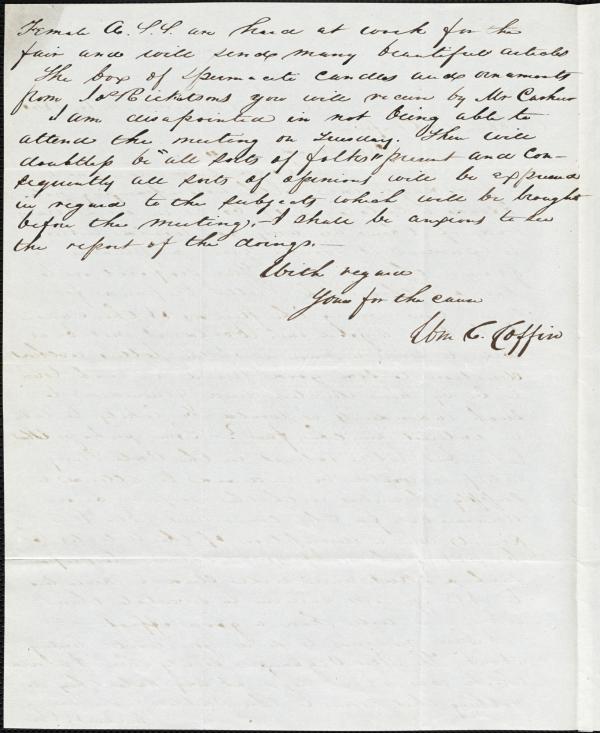 Female A. S. S. are hard at work for the
fair and will send many beautiful articles
The box of spermaceti candles and ornaments
from Jos Ricketsons you will receive by Mr Cushen
I am disapointed in not being able to
attend the meeting on Tuesday. There will
doubtless be "all sorts of folks" present and con-
sequently all sorts of opinions will be expressed
in regard to the subjects which will be brought
before the meeting. - I shall be anxious to see
the report of the doings. -
With regard
Yours for the cause
Wm C. Coffin